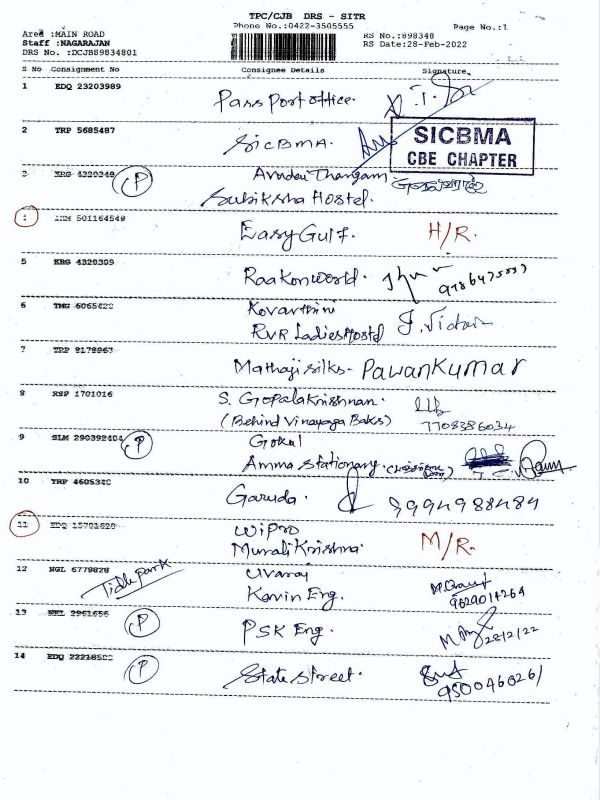 TPC/CJB DRS - SITR
Phone No.:0422-3505555
Page No.:1
Area :MAIN ROAD
Staff :NAGARAJAN
DRS No. :DCJB89834801
RS No.:898348
RS Date:28-Feb-2022
S No Consignment No Consignee Details Signature
1 EDQ 23203989 Passport office.
2 TRP 5685487 SICBMA.
SICBMA
CBE CHAPTER
3 KRG 4320348 P Thangam
Subiksha Hostel.
501164549 Easy Gulf. H/R.
5 KRG 4320309 Raakonworld.
6 TMG 6065422 Kovarthini
RVR Ladies Hostel
7 TRP 8178967 Mathaji silks. PawanKumar
8 RSP 1701016 S. Gopalakrishnan.
(Behind Vinayaga Baks) 7708386034
9 SLM 290392404 P Gokul
Amma Stationary
10 TRP 4605340 Garuda. 9994988484
11 EDQ 15701620 Wipro
Murali Krishna. M/R.
12 NGL 6779828 Tidle park Uvaraj
Kavin Eng. 9629014264
13 NKL 2961656 P PSK Eng. 28/2/22
14 EDQ 2221850 P State Street. 9500460261